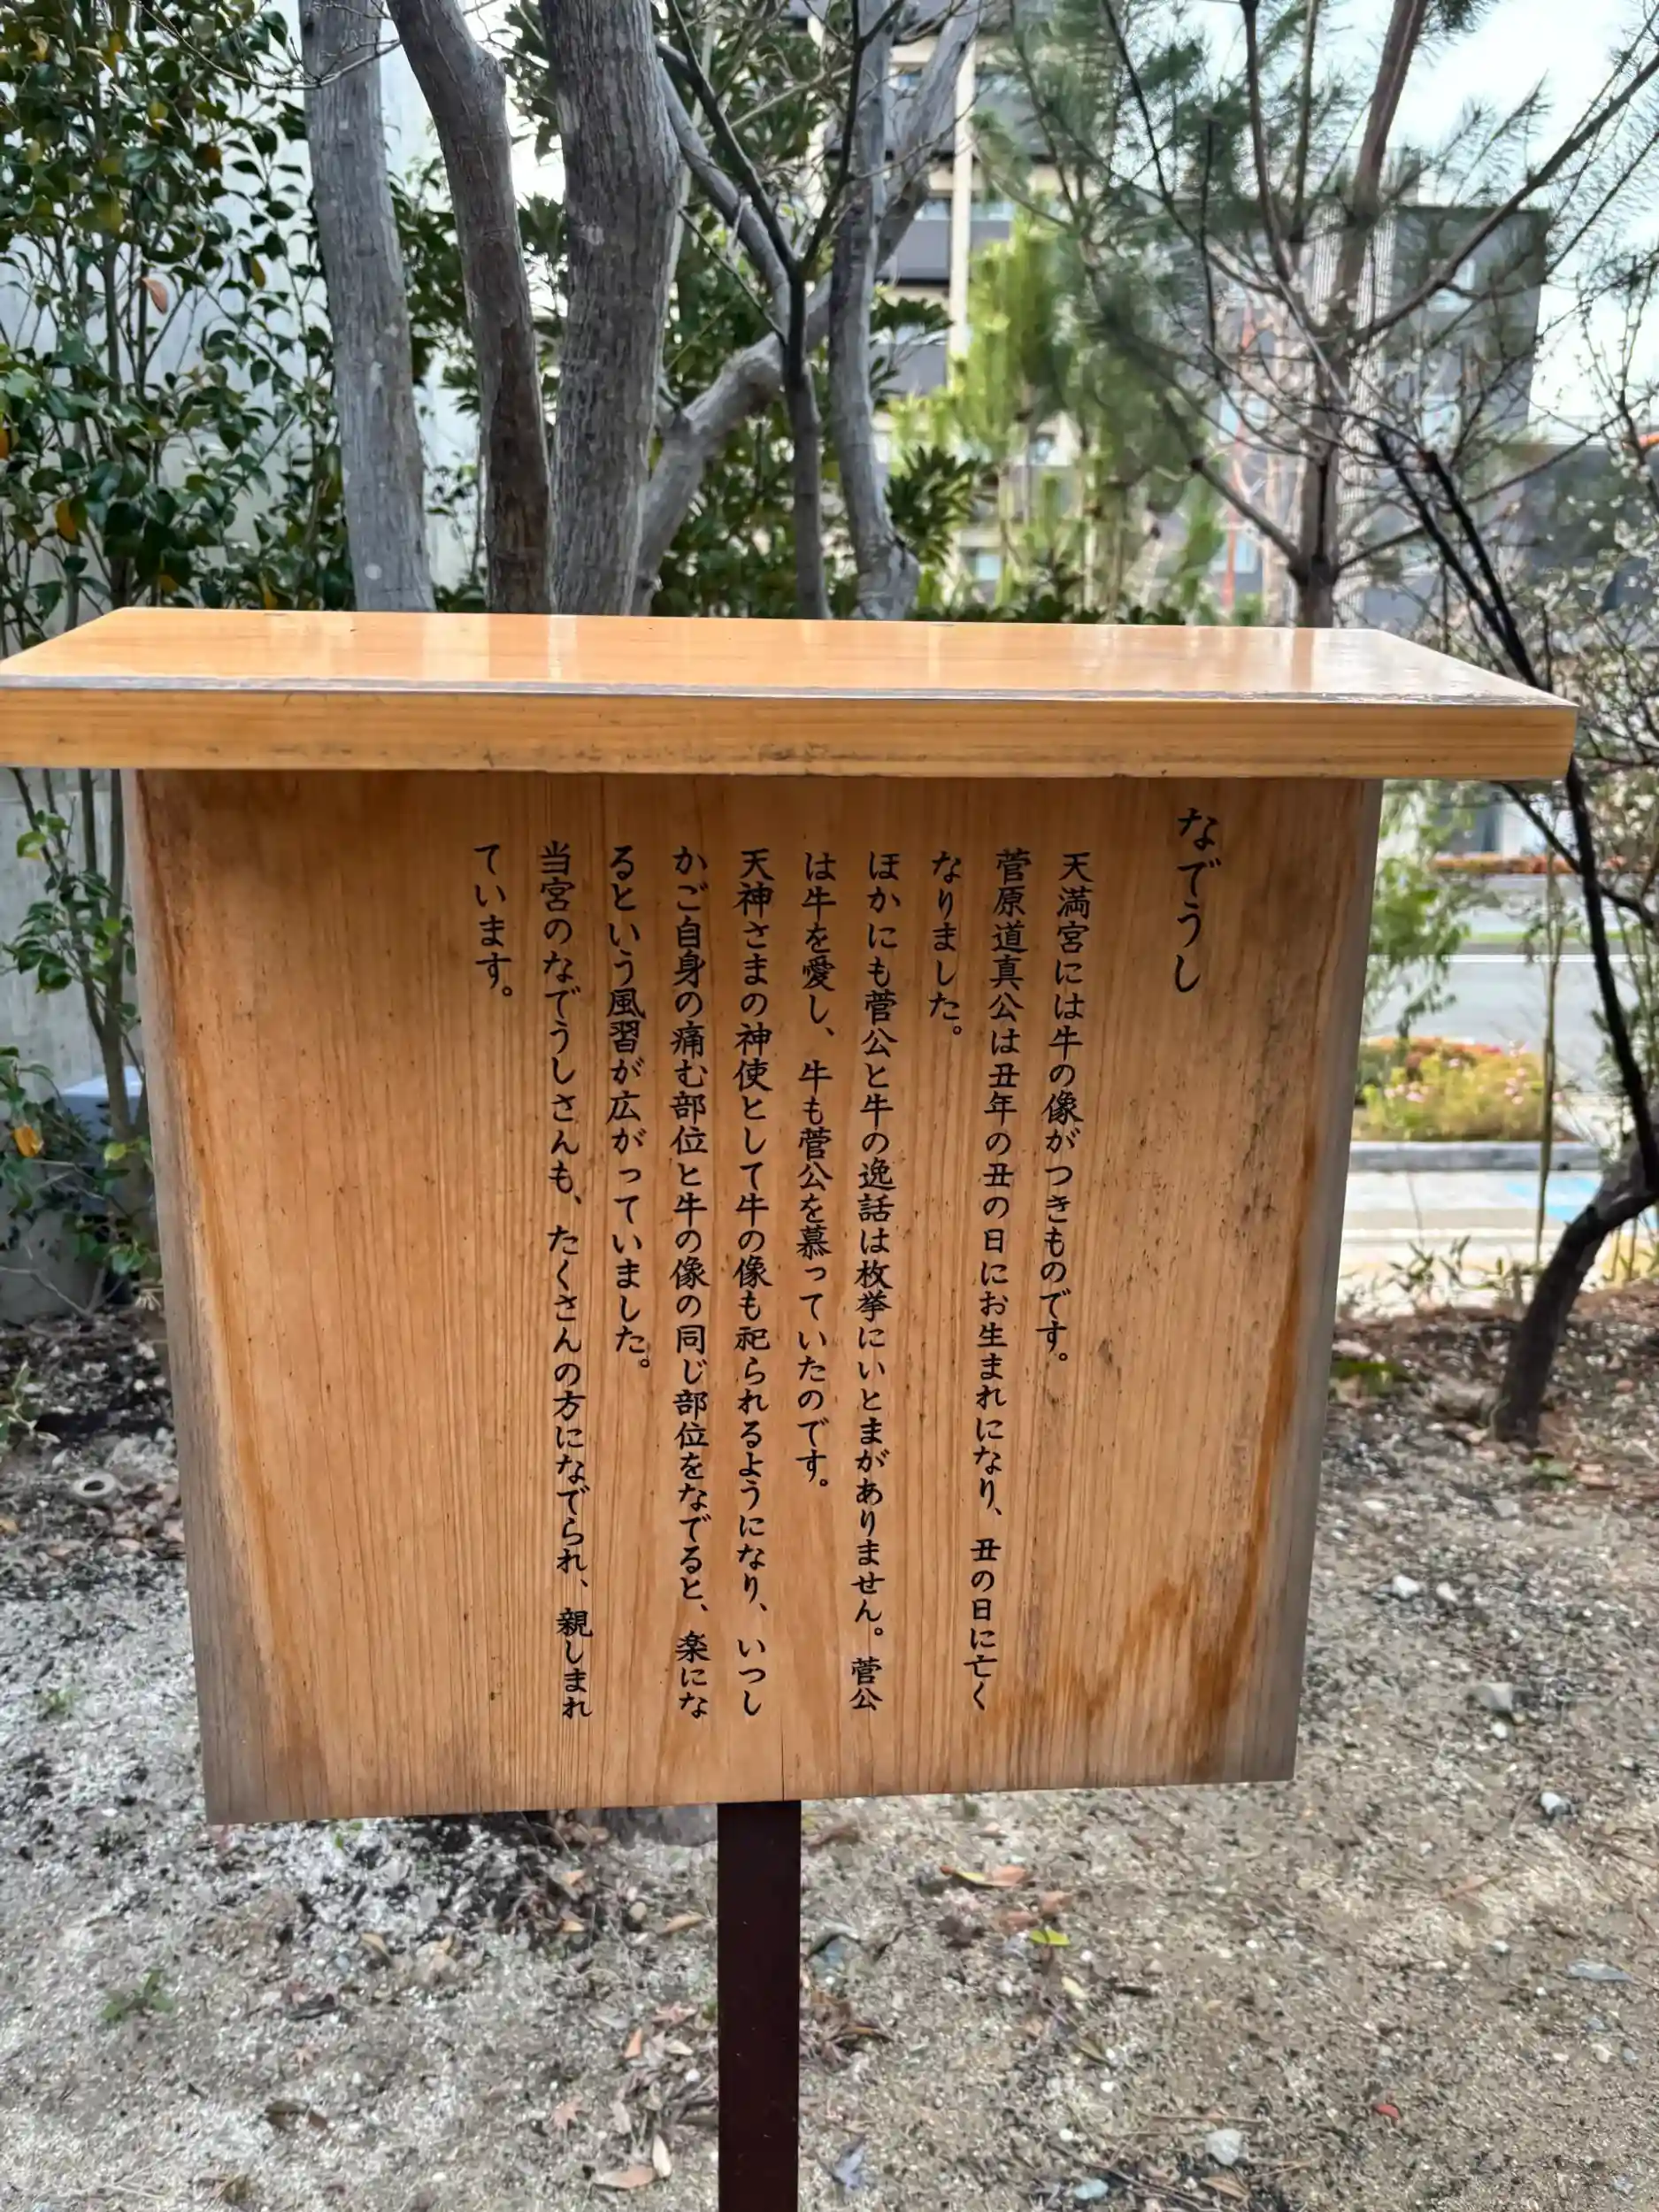 なでうし
天満宮には牛の像がつきものです。
菅原道真公は丑年の丑の日にお生まれになり、丑の日に亡く
なりました。
ほかにも菅公と牛の逸話は枚挙にいとまがありません。菅公
は牛を愛し、牛も菅公を慕っていたのです。
天神さまの神使として牛の像も祀られるようになり、いつし
かご自身の痛む部位と牛の像の同じ部位をなでると、楽にな
るという風習が広がっていました。
当宮のなでうしさんも、たくさんの方になでられ、親しまれ
ています。